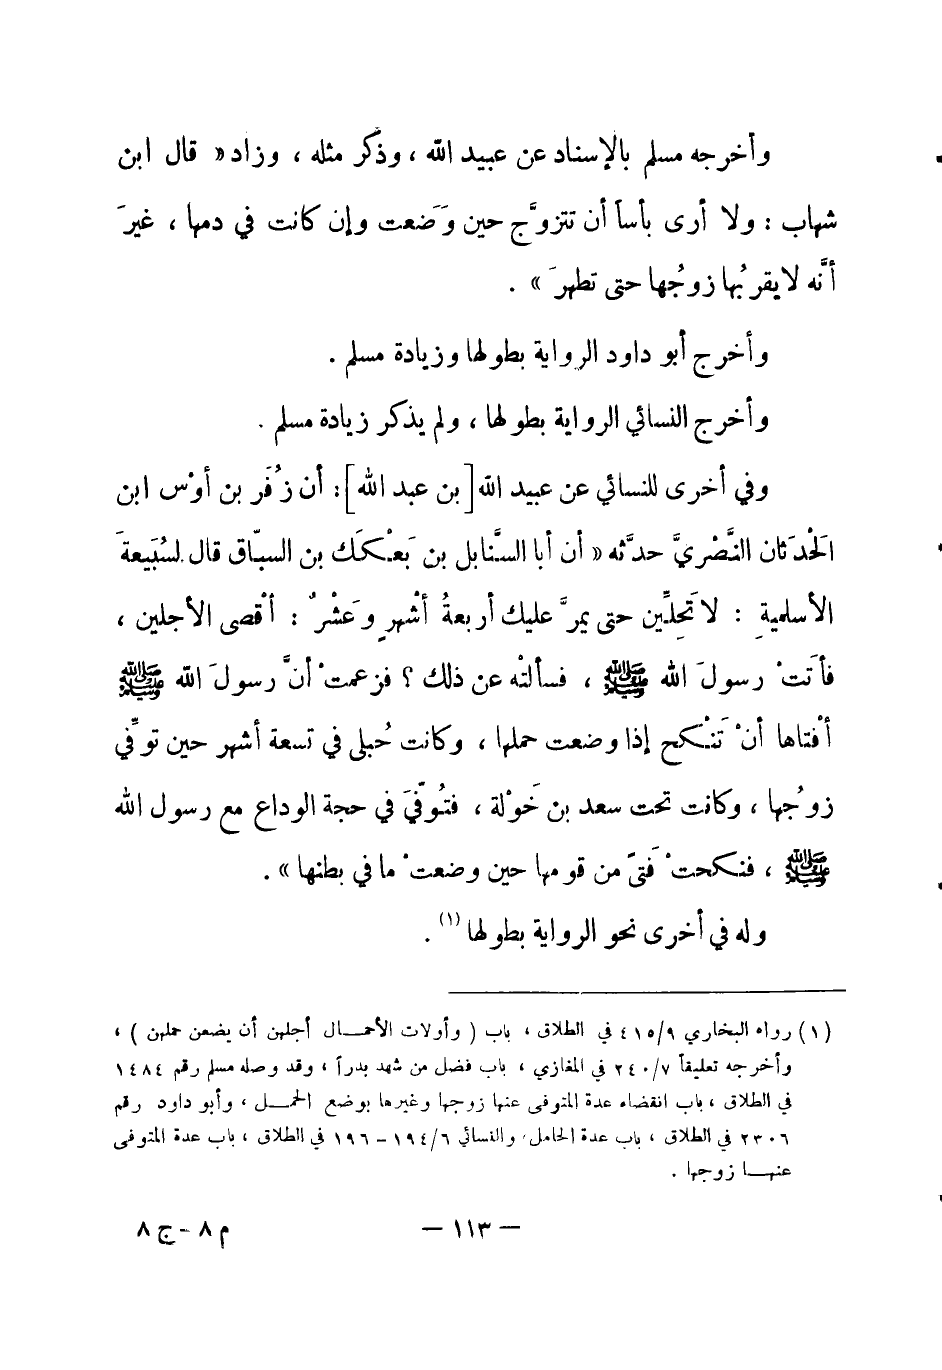 وأخرجه مسلم بالإسناد عن عبيد الله ، وذكر مثله ، وزاد « قال ابن
شهاب : ولا أرى بأساً أن تتزوَّج حين وَضَعت وإن كانت في دمها ، غيرَ
أنَّه لا يقربُها زوجُها حتى تطهرَ » .
وأخرج أبو داود الرواية بطولها وزيادة مسلم .
وأخرج النسائي الرواية بطولها ، ولم يذكر زيادة مسلم .
وفي أخرى للنسائي عن عبيد الله [ بن عبد الله ] : أن زُفَر بن أوْس ابن
الحَدَثان النَّصْريَّ حدَّثه « أن أبا السَّنابل بن بَعْكَك بن السبّاق قال لسُبَيعةَ
الأسلميةِ : لا تَحِلِّين حتى يمرَّ عليك أربعةُ أشْهرٍ وَعَشْرٌ : أقْصى الأجلين ،
فأتَتْ رسولَ الله ﷺ ، فسألتْه عن ذلك ؟ فزعمتْ أنَّ رسولَ الله ﷺ
أفْتاها أنْ تَنْكح إذا وضعت حملها ، وكانت حُبلى في تسعة أشهر حين توفِّي
زوجُها ، وكانت تحت سعد بن خَوْلة ، فتُوفِّيَ في حجة الوداع مع رسول الله
ﷺ ، فنكحتْ فَتىً من قومها حين وضعتْ ما في بطنها » .
وله في أخرى نحو الرواية بطولها (١) .
(١) رواه البخاري ٩/٤١٥ في الطلاق ، باب ( وأولات الأحمـــال أجلهن أن يضعن حملهن ) ،
وأخرجه تعليقاً ٧/٢٤٠ في المغازي ، باب فضل من شهد بدراً ، وقد وصله مسلم رقم ١٤٨٤
في الطلاق ، باب انقضاء عدة المتوفى عنها زوجها وغيرها بوضع الحمـــل ، وأبو داود رقم
٢٣٠٦ في الطلاق ، باب عدة الحامل ، والنسائي ٦/١٩٤ - ١٩٦ في الطلاق ، باب عدة المتوفى
عنهـــا زوجها .
م ٨ - ج ٨
— ١١٣ —